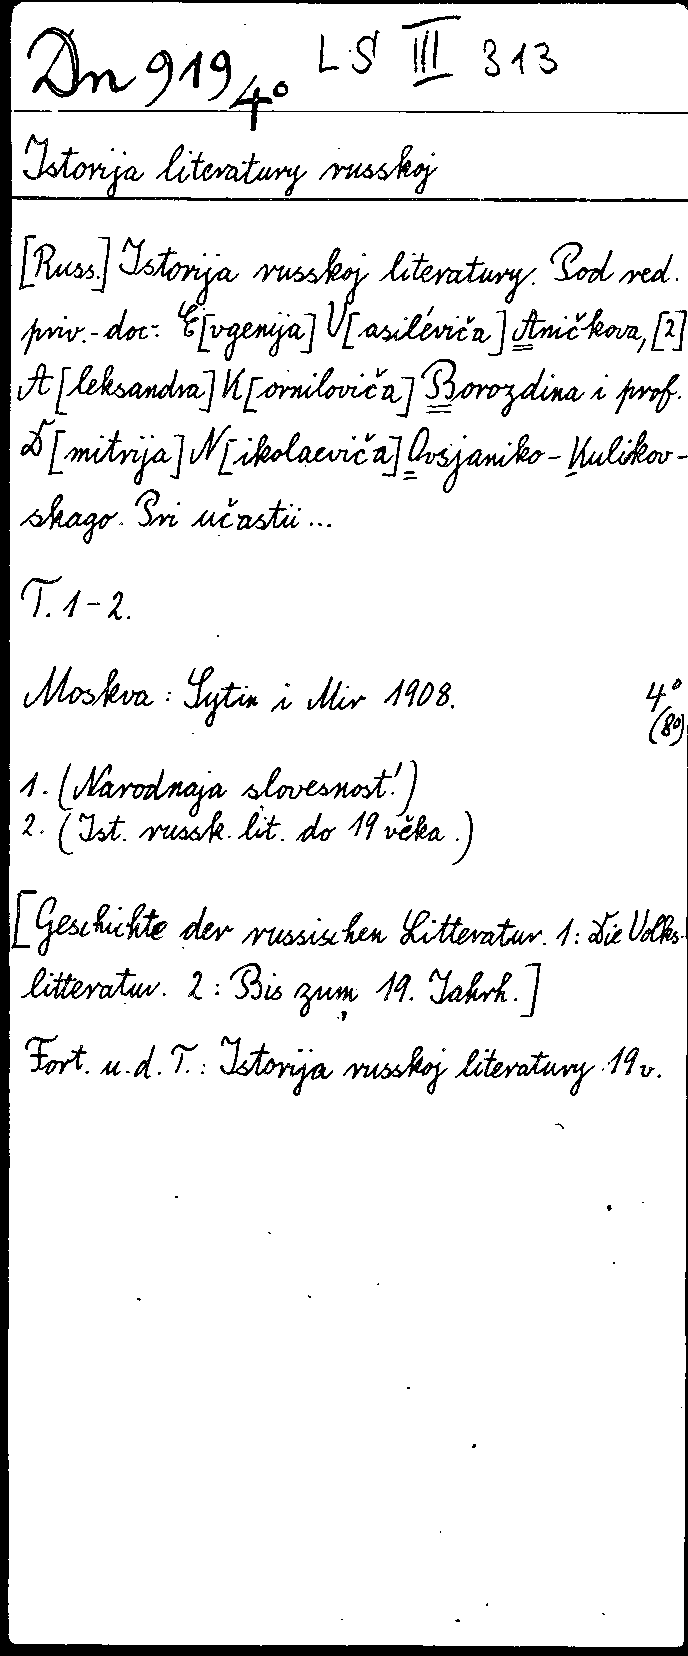 Dn 919 4° LS III 313
Istorija literatury russkoj
[Russ.] Istorija russkoj literatury. Pod red.
priv.-doc. E[vgenija] V[asiléviča] Aničkova, [2]
A[leksandra] K[orniloviča] Borozdina i prof.
D[mitrija] N[ikolaeviča] Ovsjaniko-Kulikov-
skago. Pri učastii ...
T. 1-2.
Moskva: Sytin i Mir 1908. 4°
(8°)
1. (Narodnaja slovesnost'.)
2. (Ist. russk. lit. do 19 věka.)
[Geschichte der russischen Litteratur. 1: Die Volks-
litteratur. 2: Bis zum 19. Jahrh.]
Fort. u. d. T.: Istorija russkoj literatury 19 v.